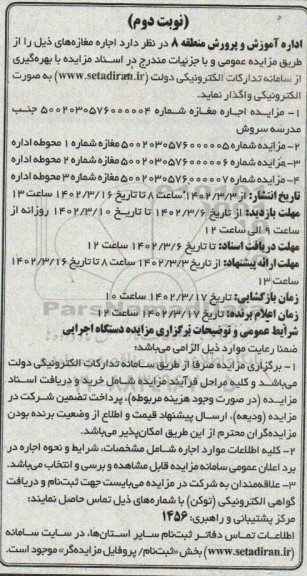 (نوبت دوم)
اداره آموزش و پرورش منطقه ۸ در نظر دارد اجاره مغازه‌های ذیل را از
طریق مزایده عمومی و با جزئیات مندرج در اسناد مزایده با بهره‌گیری
از سامانه تدارکات الکترونیکی دولت (www.setadiran.ir) به صورت
الکترونیکی واگذار نماید.
۱- مزایده اجاره مغازه شماره ۵۰۰۲۰۳۰۵۷۶۰۰۰۰۰۴ جنب
مدرسه سروش
۲- مزایده شماره ۵۰۰۲۰۳۰۵۷۶۰۰۰۰۰۵ مغازه شماره ۱ محوطه اداره
۳- مزایده شماره ۵۰۰۲۰۳۰۵۷۶۰۰۰۰۰۶ مغازه شماره ۲ محوطه اداره
۴- مزایده شماره ۵۰۰۲۰۳۰۵۷۶۰۰۰۰۰۷ مغازه شماره ۳ محوطه اداره
تاریخ انتشار: از ۱۴۰۲/۳/۳ ساعت ۸ تا تاریخ ۱۴۰۲/۳/۱۶ ساعت ۱۳
مهلت بازدید: از تاریخ ۱۴۰۲/۳/۶ تا تاریخ ۱۴۰۲/۳/۱۰ روزانه از
ساعت ۹ الی ساعت ۱۲
مهلت دریافت اسناد: تا تاریخ ۱۴۰۲/۳/۶ ساعت ۱۲
مهلت ارائه پیشنهاد: از تاریخ ۱۴۰۲/۳/۳ ساعت ۸ تا تاریخ ۱۴۰۲/۳/۱۶ ساعت
۱۳
زمان بازگشایی: تاریخ ۱۴۰۲/۳/۱۷ ساعت ۱۰
زمان اعلام برنده: تاریخ ۱۴۰۲/۳/۱۷ ساعت ۱۲
شرایط عمومی و توضیحات برگزاری مزایده دستگاه اجرایی
ضمنا رعایت موارد ذیل الزامی می‌باشد:
۱- برگزاری مزایده صرفا از طریق سامانه تدارکات الکترونیکی دولت
می‌باشد و کلیه مراحل فرآیند مزایده شامل خرید و دریافت اسناد
مزایده (در صورت وجود هزینه مربوطه)، پرداخت تضمین شرکت در
مزایده (ودیعه)، ارسال پیشنهاد قیمت و اطلاع از وضعیت برنده بودن
مزایده‌گران محترم از این طریق امکان‌پذیر می‌باشد.
۲- کلیه اطلاعات موارد اجاره شامل مشخصات، شرایط و نحوه اجاره در
برد اعلان عمومی سامانه مزایده قابل مشاهده و بررسی و انتخاب می‌باشد.
۳- علاقه‌مندان به شرکت در مزایده می‌بایست جهت ثبت‌نام و دریافت
گواهی الکترونیکی (توکن) با شماره‌های ذیل تماس حاصل نمایند:
مرکز پشتیبانی و راهبری: ۱۴۵۶
اطلاعات تماس دفاتر ثبت‌نام سایر استان‌ها، در سایت سامانه
(www.setadiran.ir) بخش «ثبت‌نام/ پروفایل مزایده‌گر» موجود است.